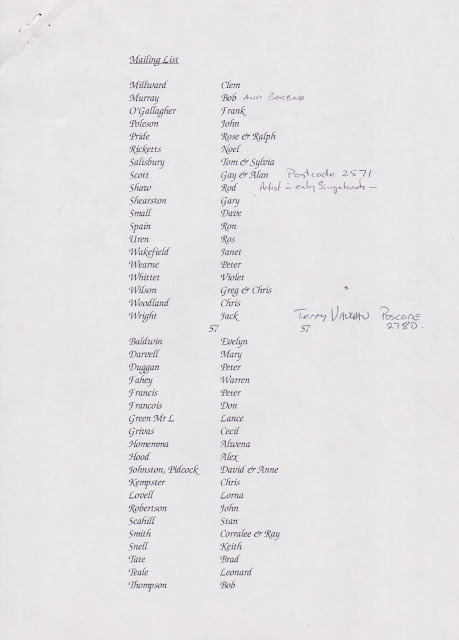 Mailing List
Millward Clem
Murray Bob AND BARBARA
O'Gallagher Frank
Poleson John
Pride Rose & Ralph
Ricketts Noel
Salisbury Tom & Sylvia
Scott Gay & Alan Postcode 2571
Shaw Rod Artist in early Singabouts —
Shearston Gary
Small Dave
Spain Ron
Uren Ros
Wakefield Janet
Wearne Peter
Whittet Violet
Wilson Greg & Chris *
Woodland Chris
Wright Jack Terry VAUGHAN POSCODE
57 57 2780.
Baldwin Evelyn
Darvell Mary
Duggan Peter
Fahey Warren
Francis Peter
Francois Don
Green Mr L Lance
Grivas Cecil
Homemma Alwena
Hood Alex
Johnston, Pidcock David & Anne
Kempster Chris
Lovell Lorna
Robertson John
Scahill Stan
Smith Corralee & Ray
Snell Keith
Tate Brad
Teale Leonard
Thompson Bob